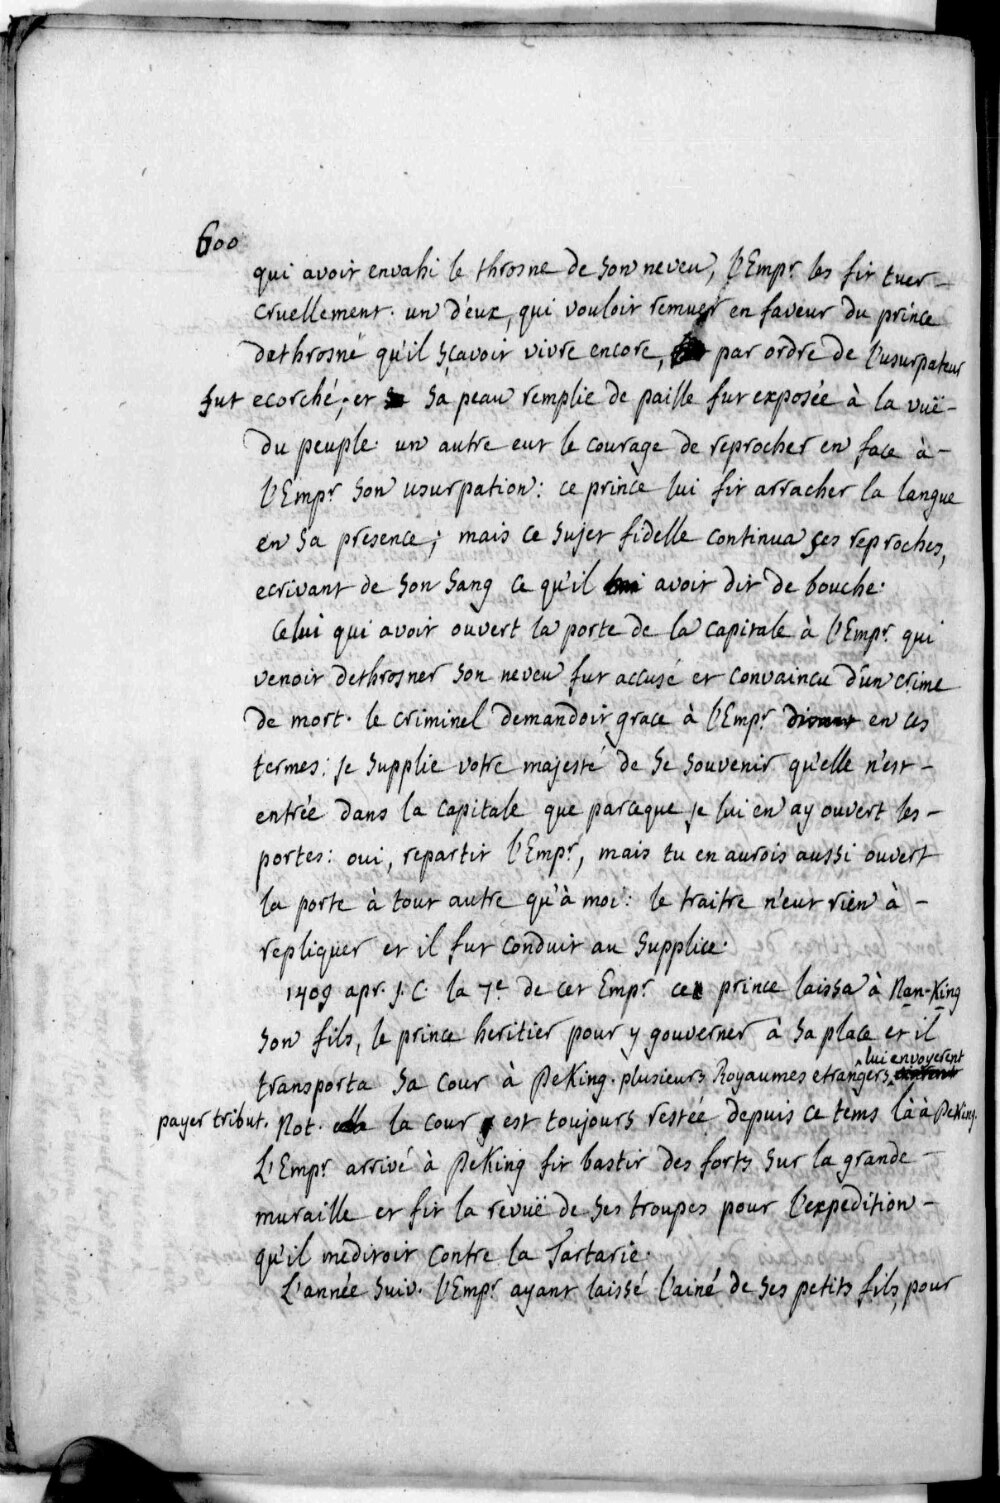 600
qui avoit envahi le throsne de son neveu, l'Emp.r les fit tuer
cruellement. un d'eux, qui vouloit remuer en faveur du prince
dethrosné qu'il sçavoit vivre encore, par ordre de l'usurpateur
fut ecorché; et sa peau remplie de paille fut exposée à la vuë
du peuple. un autre eut le courage de reprocher en face à
l'Emp.r son usurpation: ce prince lui fit arracher la langue
en sa presence; mais ce sujet fidelle continua ses reproches,
ecrivant de son sang ce qu'il avoit dit de bouche.
Celui qui avoit ouvert la porte de la capitale à l'Emp.r qui
venoit dethrosner son neveu fut accusé et convaincu d'un crime
de mort. le criminel demandoit grace à l'Emp.r en ces
termes: je supplie votre majesté de se souvenir qu'elle n'est
entrée dans la capitale que parceque je lui en ay ouvert les
portes: oui, repartit l'Emp.r, mais tu en aurois aussi ouvert
la porte à tout autre qu'à moi: le traitre n'eut rien à
repliquer et il fut conduit au supplice.
1409 apr. J. C. la 7.e de cet Emp.r ce prince laissa à Nan-King
son fils, le prince heritier pour y gouverner à sa place et il
transporta sa cour à PeKing. plusieurs Royaumes etrangers lui envoyerent
payer tribut. Not. la cour est toujours restée depuis ce tems là à PeKing.
L'Emp.r arrivé à PeKing fit bastir des forts sur la grande
muraille et fit la revuë de ses troupes pour l'expedition
qu'il meditoit contre la Tartarie.
L'année suiv. l'Emp.r ayant laissé l'ainé de ses petits fils, pour